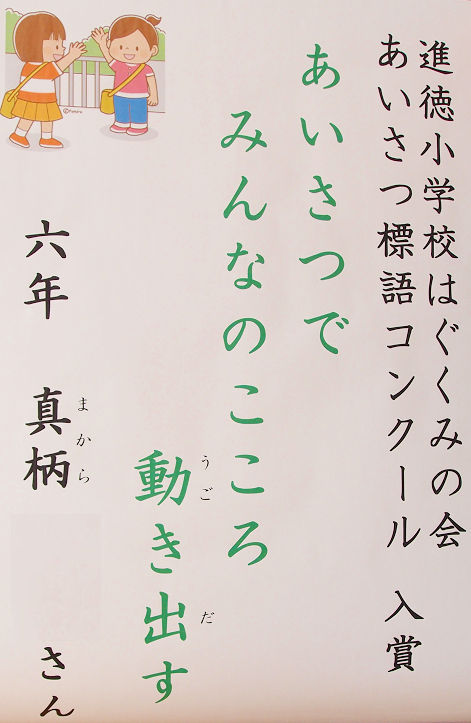 進徳小学校はぐくみの会
あいさつ標語コンクール 入賞
あいさつで
みんなのこころ
動き出す
うご だ
六年 真柄 さん
まから